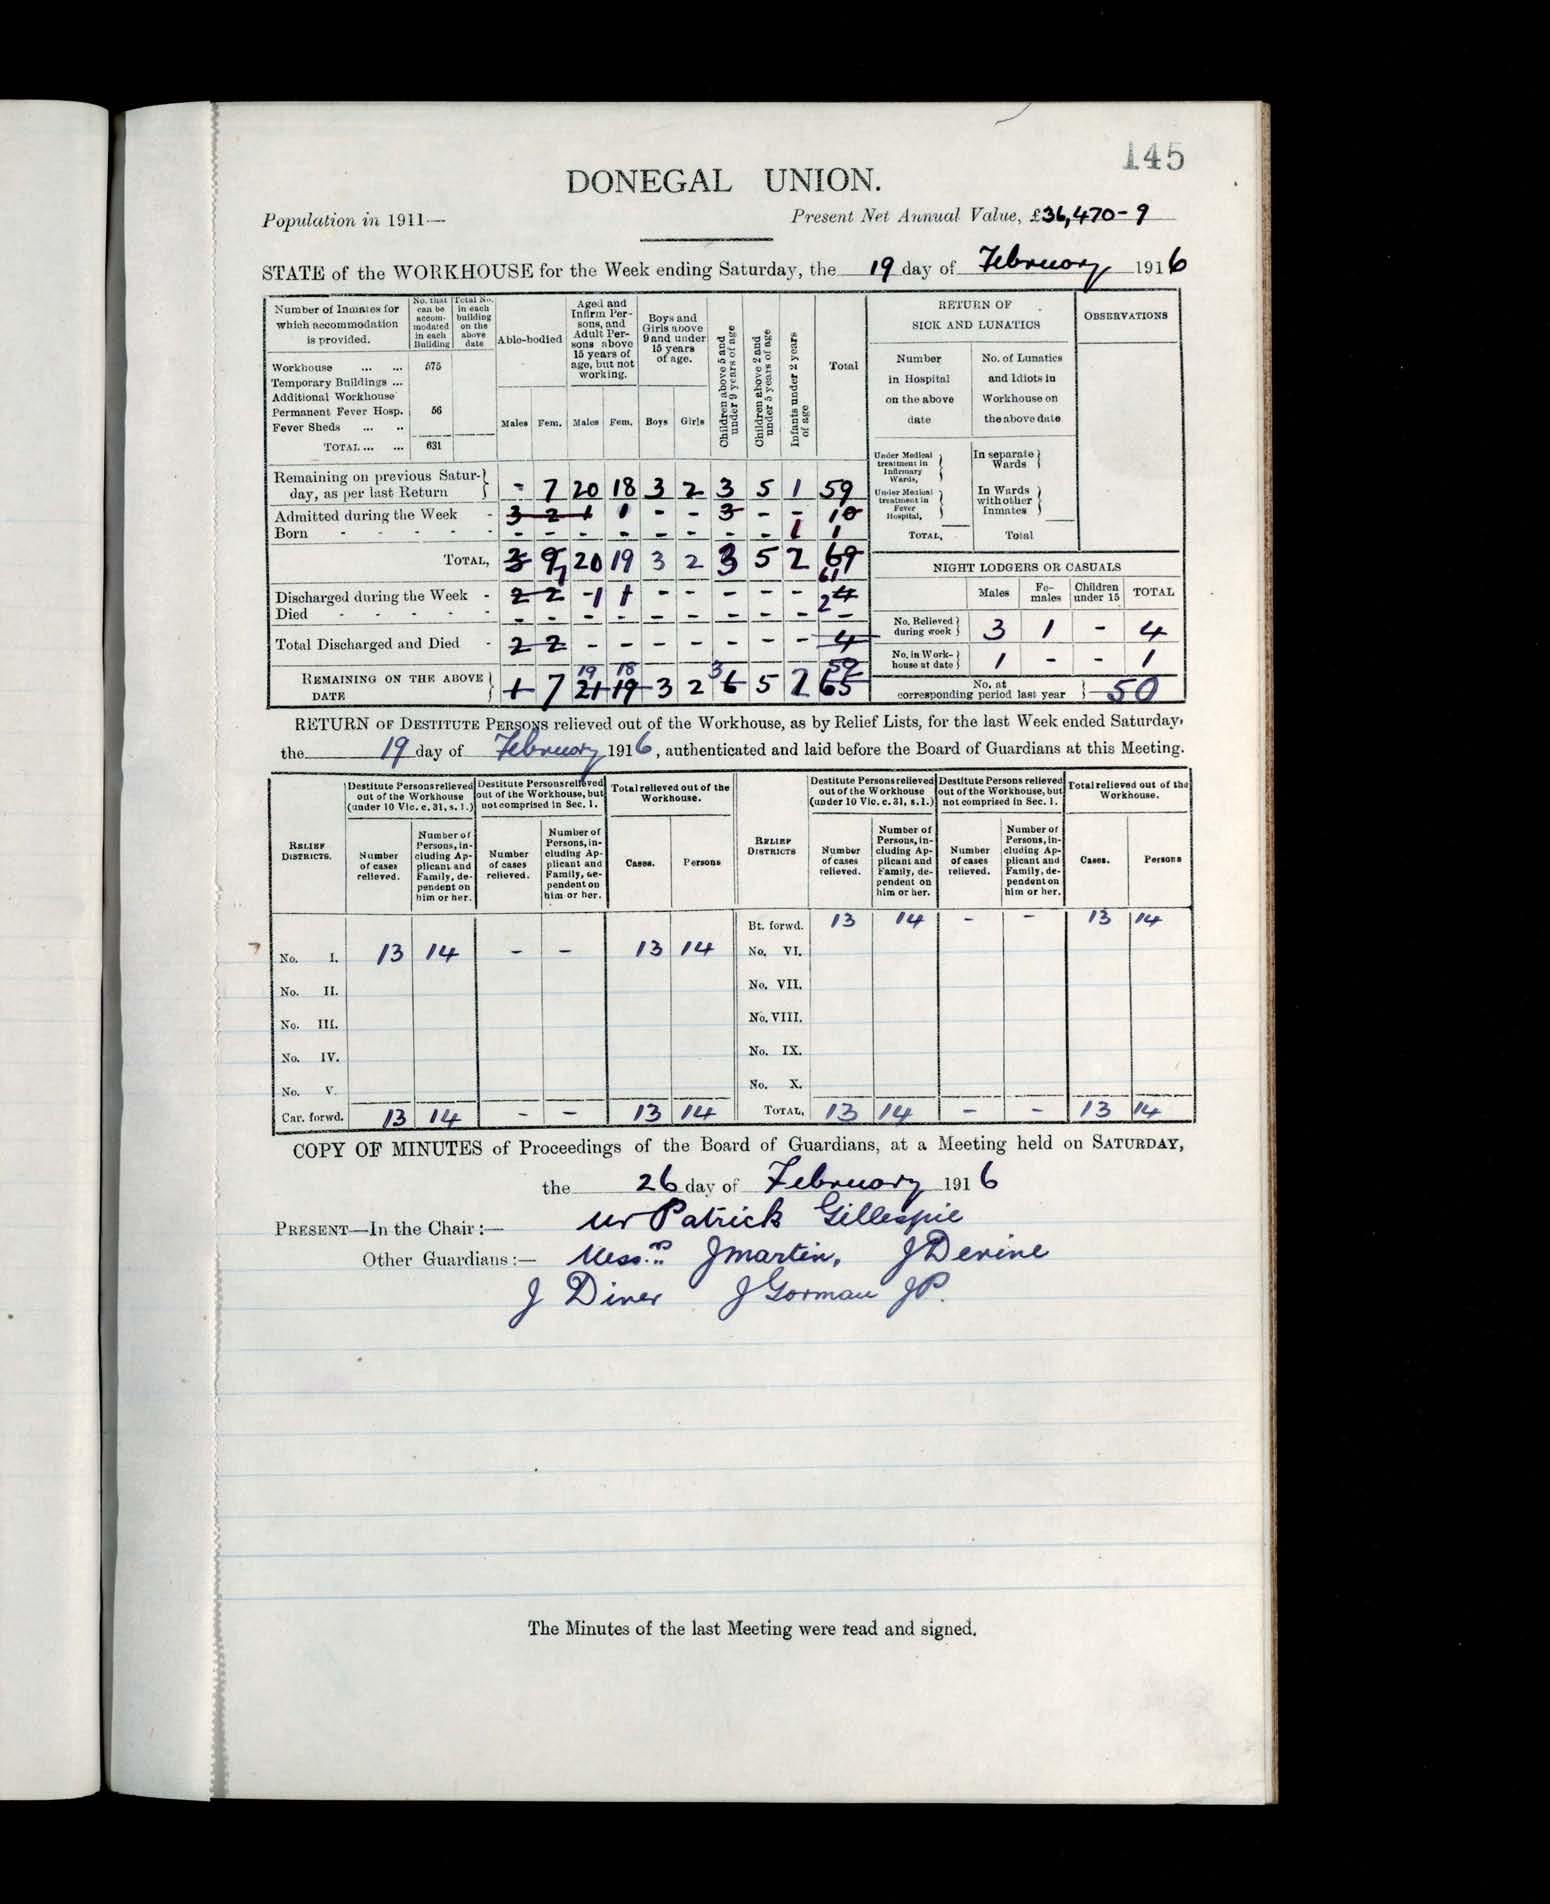 145
DONEGAL UNION.
Population in 1911—
Present Net Annual Value, £36,470-9
STATE of the WORKHOUSE for the Week ending Saturday, the 19 day of February 1916
Number of Inmates for which accommodation is provided.
No. that can be accommodated in each Building
Total No. in each building on the above date
Able-bodied
Aged and Infirm Persons, and Adult Persons above 15 years of age, but not working.
Boys and Girls above 9 and under 15 years of age.
Children above 5 and under 9 years of age
Children above 2 and under 5 years of age
Infants under 2 years of age
Total
RETURN OF SICK AND LUNATICS
OBSERVATIONS
Males Fem. Males Fem. Boys Girls
Workhouse ... ... 575
Temporary Buildings ...
Additional Workhouse
Permanent Fever Hosp. 56
Fever Sheds ... ..
TOTAL ... ... 631
Number in Hospital on the above date
No. of Lunatics and Idiots in Workhouse on the above date
Under Medical treatment in Infirmary Wards,
In separate Wards
Under Medical treatment in Fever Hospital,
In Wards with other Inmates
TOTAL, Total
Remaining on previous Saturday, as per last Return - 7 20 18 3 2 3 5 1 59
Admitted during the Week - 3 2 1 1 - - 3 - - 10
Born - - - - - - - - - - - - - 1 1
TOTAL, 3 9 7 20 19 3 2 3 5 2 69 61
Discharged during the Week - 2 2 -1 1 - - - - - 2 4
Died - - - - - - - - - - - - - - -
Total Discharged and Died - 2 2 - - - - - - - 4
REMAINING ON THE ABOVE DATE 1 7 21 19 19 18 3 2 6 3 5 2 65 59
NIGHT LODGERS OR CASUALS
Males Females Children under 15 TOTAL
No. Relieved during week 3 1 - 4
No. in Workhouse at date 1 - - 1
No. at corresponding period last year 50
RETURN OF DESTITUTE PERSONS relieved out of the Workhouse, as by Relief Lists, for the last Week ended Saturday,
the 19 day of February 1916, authenticated and laid before the Board of Guardians at this Meeting.
RELIEF DISTRICTS.
Destitute Persons relieved out of the Workhouse (under 10 Vic. c. 31, s. 1.)
Destitute Persons relieved out of the Workhouse, but not comprised in Sec. 1.
Total relieved out of the Workhouse.
Number of cases relieved.
Number of Persons, including Applicant and Family, dependent on him or her.
Number of cases relieved.
Number of Persons, including Applicant and Family, dependent on him or her.
Cases. Persons
RELIEF DISTRICTS
Destitute Persons relieved out of the Workhouse (under 10 Vic. c. 31, s. 1.)
Destitute Persons relieved out of the Workhouse, but not comprised in Sec. 1.
Total relieved out of the Workhouse.
Number of cases relieved.
Number of Persons, including Applicant and Family, dependent on him or her.
Number of cases relieved.
Number of Persons, including Applicant and Family, dependent on him or her.
Cases. Persons
Bt. forwd. 13 14 - - 13 14
No. I. 13 14 - - 13 14 No. VI.
No. II. No. VII.
No. III. No. VIII.
No. IV. No. IX.
No. V. No. X.
Car. forwd. 13 14 - - 13 14 TOTAL, 13 14 - - 13 14
COPY OF MINUTES of Proceedings of the Board of Guardians, at a Meeting held on SATURDAY,
the 26 day of February 1916
PRESENT—In the Chair :— Mr Patrick Gillespie
Other Guardians :— Messrs J Martin, J Devine
J Diver J Gorman JP.
The Minutes of the last Meeting were read and signed.